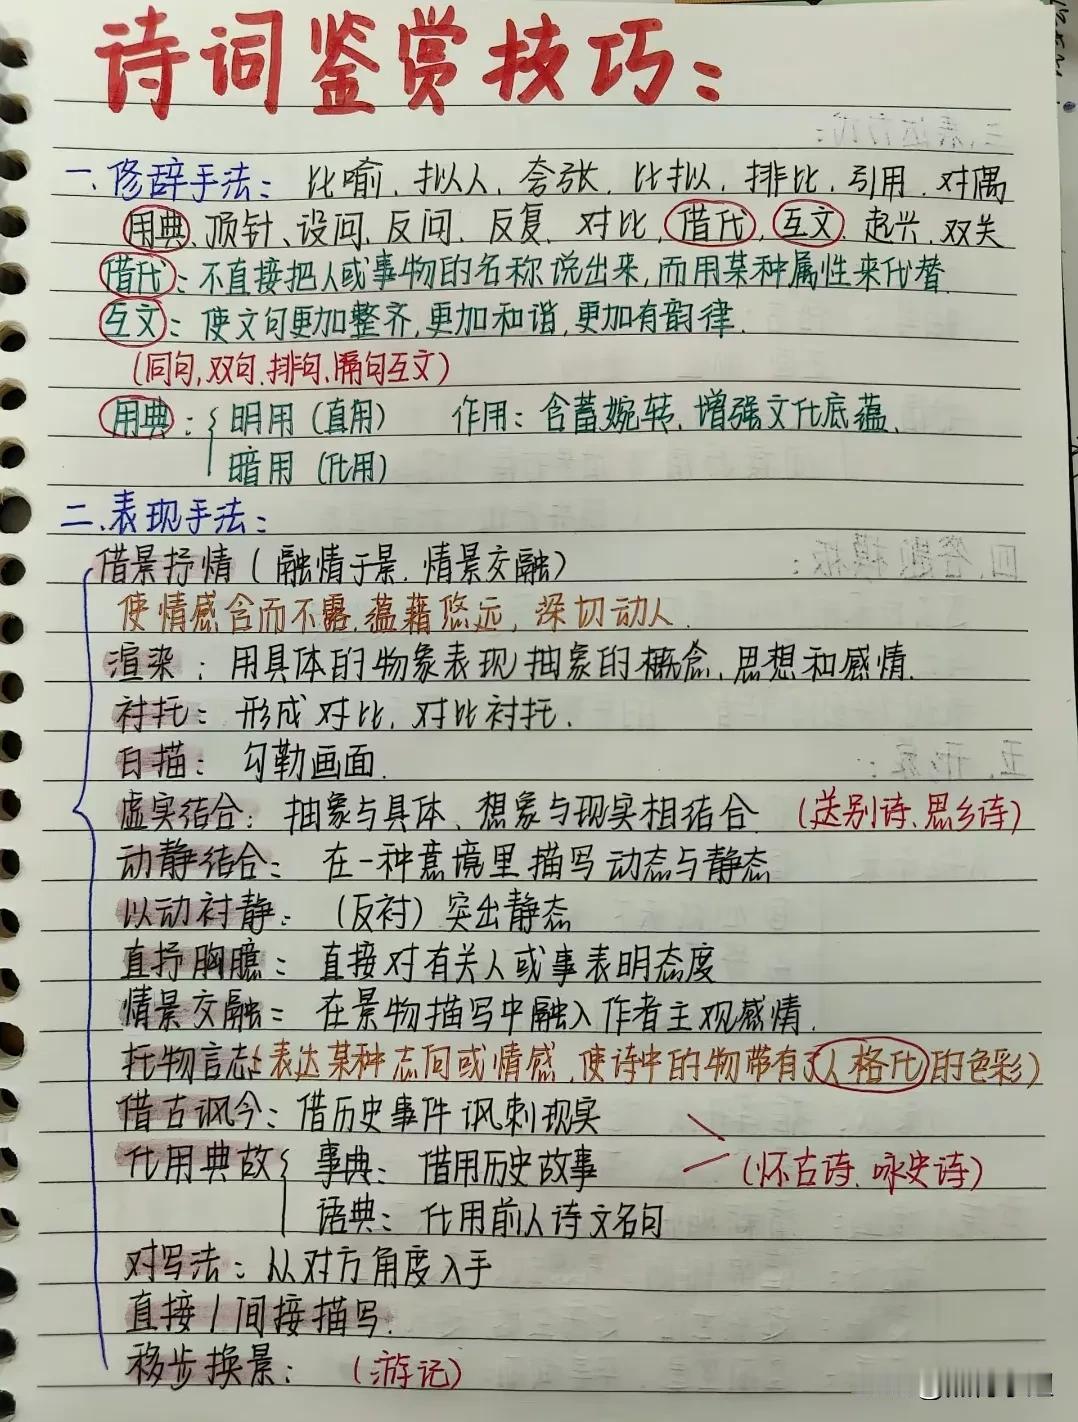 诗词鉴赏技巧：
一、修辞手法：比喻、拟人、夸张、比拟、排比、引用、对偶
用典、顶针、设问、反问、反复、对比、借代、互文、起兴、双关
借代：不直接把人或事物的名称说出来，而用某种属性来代替．
互文：使文句更加整齐，更加和谐，更加有韵律．
（同句，双句、排句、隔句互文）
用典：明用（直用） 作用：含蓄婉转、增强文化底蕴．
暗用（化用）
二、表现手法：
借景抒情（融情于景、情景交融）
使情感含而不露，蕴藉悠远，深切动人．
渲染：用具体的物象表现抽象的概念、思想和感情．
衬托：形成对比，对比衬托．
白描：勾勒画面．
虚实结合：抽象与具体、想象与现实相结合．（送别诗、思乡诗）
动静结合：在一种意境里描写动态与静态
以动衬静：（反衬）突出静态
直抒胸臆：直接对有关人或事表明态度
情景交融：在景物描写中融入作者主观感情．
托物言志（表达某种志向或情感，使诗中的物带有了人格化的色彩）
借古讽今：借历史事件讽刺现实
化用典故 事典：借用历史故事 （怀古诗、咏史诗）
语典：化用前人诗文名句
对写法：从对方角度入手
直接/间接描写．
移步换景：（游记）
三、表达方式：
四、答题模板：
五、形象：